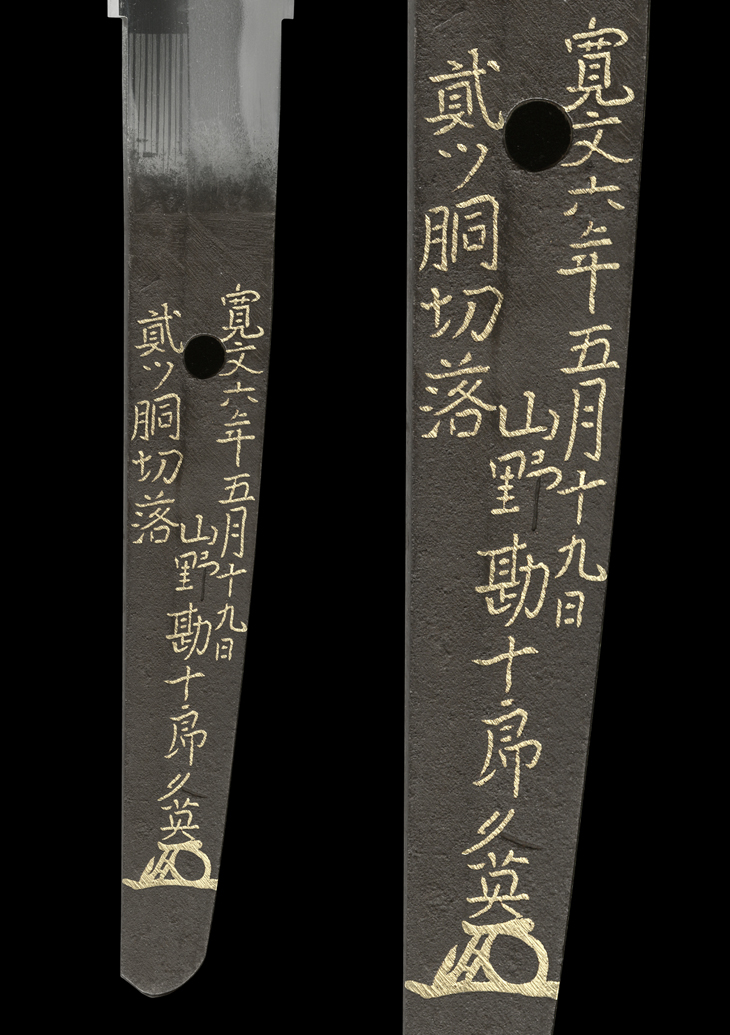 寛文六年五月十九日
山野勘十郎久英
貳ツ胴切落
寛文六年五月十九日
山野勘十郎久英
貳ツ胴切落